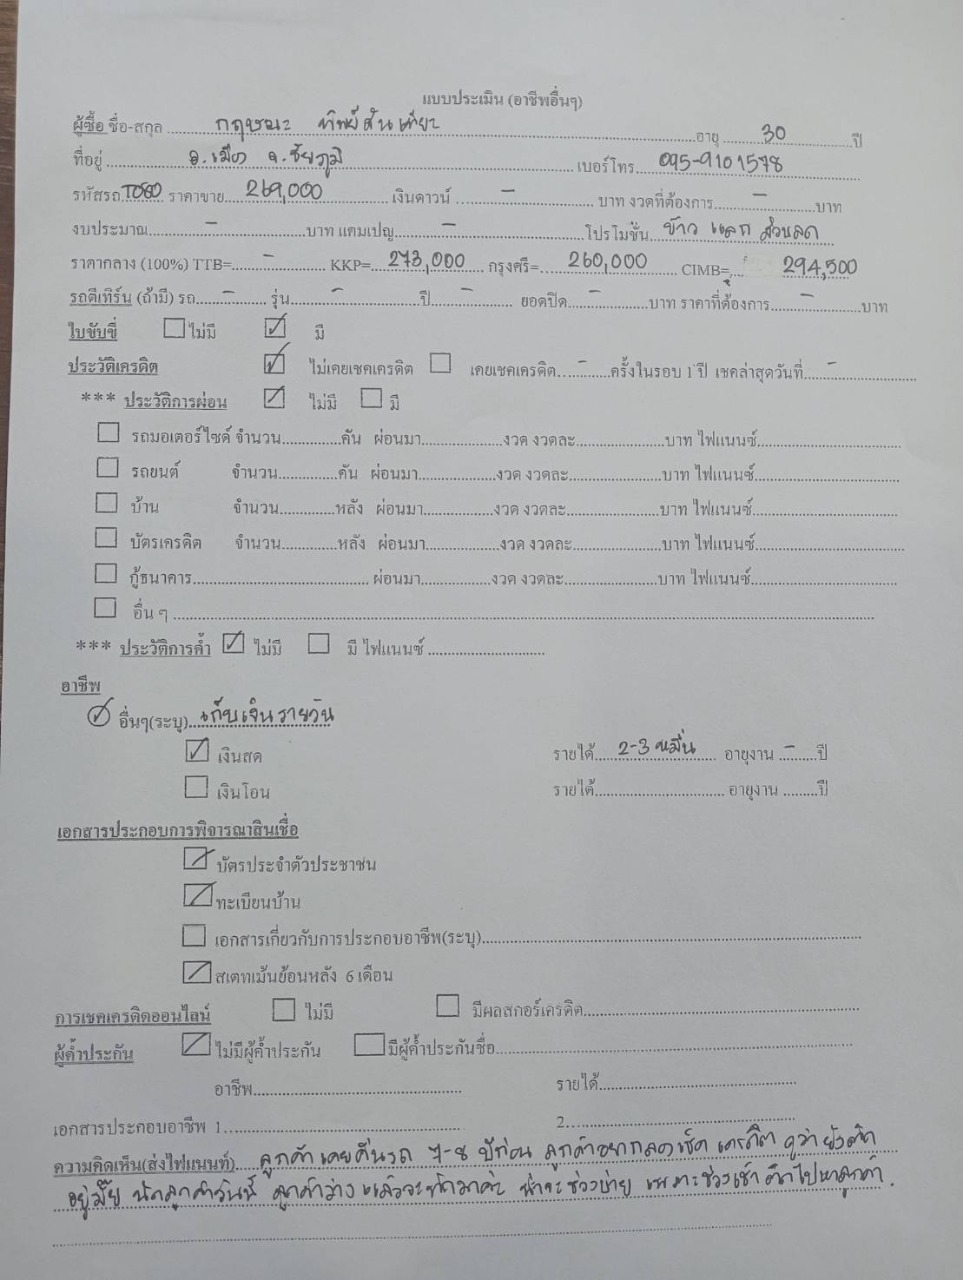 แบบประเมิน (อาชีพอื่นๆ)
ผู้ซื้อ ชื่อ-สกุล ........ กฤษณะ ทิพย์สันเทียะ ........ อายุ ... 30 ... ปี
ที่อยู่ ........ อ.เมือง จ.ชัยภูมิ ........ เบอร์โทร.. 095-9101578
รหัสรถ.T080.. ราคาขาย.. 269,000 ........ เงินดาวน์ ...... - ...... บาท งวดที่ต้องการ...... - ......บาท
งบประมาณ...... - ......บาท แคมเปญ...... - ......โปรโมชั่น.. ข้าว แลก ส่วนลด
ราคากลาง (100%) TTB=.... - .... KKP=.. 273,000 .. กรุงศรี=.. 260,000 .. CIMB=.... 294,500
รถตีเทิร์น (ถ้ามี) รถ.... - .... รุ่น...... - ......ปี.... - .... ยอดปิด...... - ......บาท ราคาที่ต้องการ...... - ......บาท
ใบขับขี่ ☐ ไม่มี ☑ มี
ประวัติเครดิต ☑ ไม่เคยเชคเครดิต ☐ เคยเชคเครดิต.. - ....ครั้งในรอบ 1 ปี เชคล่าสุดวันที่.... - ........
*** ประวัติการผ่อน ☑ ไม่มี ☐ มี
☐ รถมอเตอร์ไซด์ จำนวน............คัน ผ่อนมา................งวด งวดละ................บาท ไฟแนนซ์................
☐ รถยนต์ จำนวน............คัน ผ่อนมา................งวด งวดละ................บาท ไฟแนนซ์................
☐ บ้าน จำนวน............หลัง ผ่อนมา................งวด งวดละ................บาท ไฟแนนซ์................
☐ บัตรเครดิต จำนวน............หลัง ผ่อนมา................งวด งวดละ................บาท ไฟแนนซ์................
☐ กู้ธนาคาร................................ ผ่อนมา................งวด งวดละ................บาท ไฟแนนซ์................
☐ อื่น ๆ ................................................
*** ประวัติการค้ำ ☑ ไม่มี ☐ มี ไฟแนนซ์ ........................
อาชีพ
☑ อื่นๆ(ระบุ).. เก็บเงินรายวัน
☑ เงินสด รายได้.... 2-3 หมื่น .... อายุงาน .. - ..ปี
☐ เงินโอน รายได้................................ อายุงาน .........ปี
เอกสารประกอบการพิจารณาสินเชื่อ
☑ บัตรประจำตัวประชาชน
☑ ทะเบียนบ้าน
☐ เอกสารเกี่ยวกับการประกอบอาชีพ(ระบุ)................................
☑ สเตทเม้นย้อนหลัง 6 เดือน
การเชคเครดิตออนไลน์ ☐ ไม่มี ☐ มีผลสกอร์เครดิต................................
ผู้ค้ำประกัน ☑ ไม่มีผู้ค้ำประกัน ☐ มีผู้ค้ำประกันชื่อ................................
อาชีพ................................ รายได้................................
เอกสารประกอบอาชีพ 1................................ 2................................
ความคิดเห็น(ส่งไฟแนนท์).... ลูกค้าเคยคืนรถ 7-8 ปีก่อน ลูกค้าอยากลองเช็คเครดิต ดูว่ายังติด
อยู่มั๊ย นัดลูกค้าวันนี้ ลูกค้าว่าง แล้วจะทักมาค่ะ น่าจะช่วงบ่าย เพราะช่วงเช้า ไปหาลูกค้า.